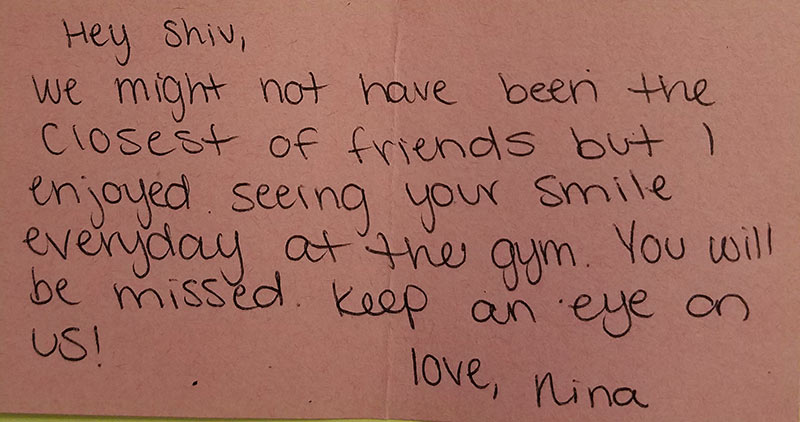 Hey Shiv,
We might not have been the
Closest of friends but I
enjoyed seeing your smile
everyday at the gym. You will
be missed. Keep an eye on
us!
love, Nina